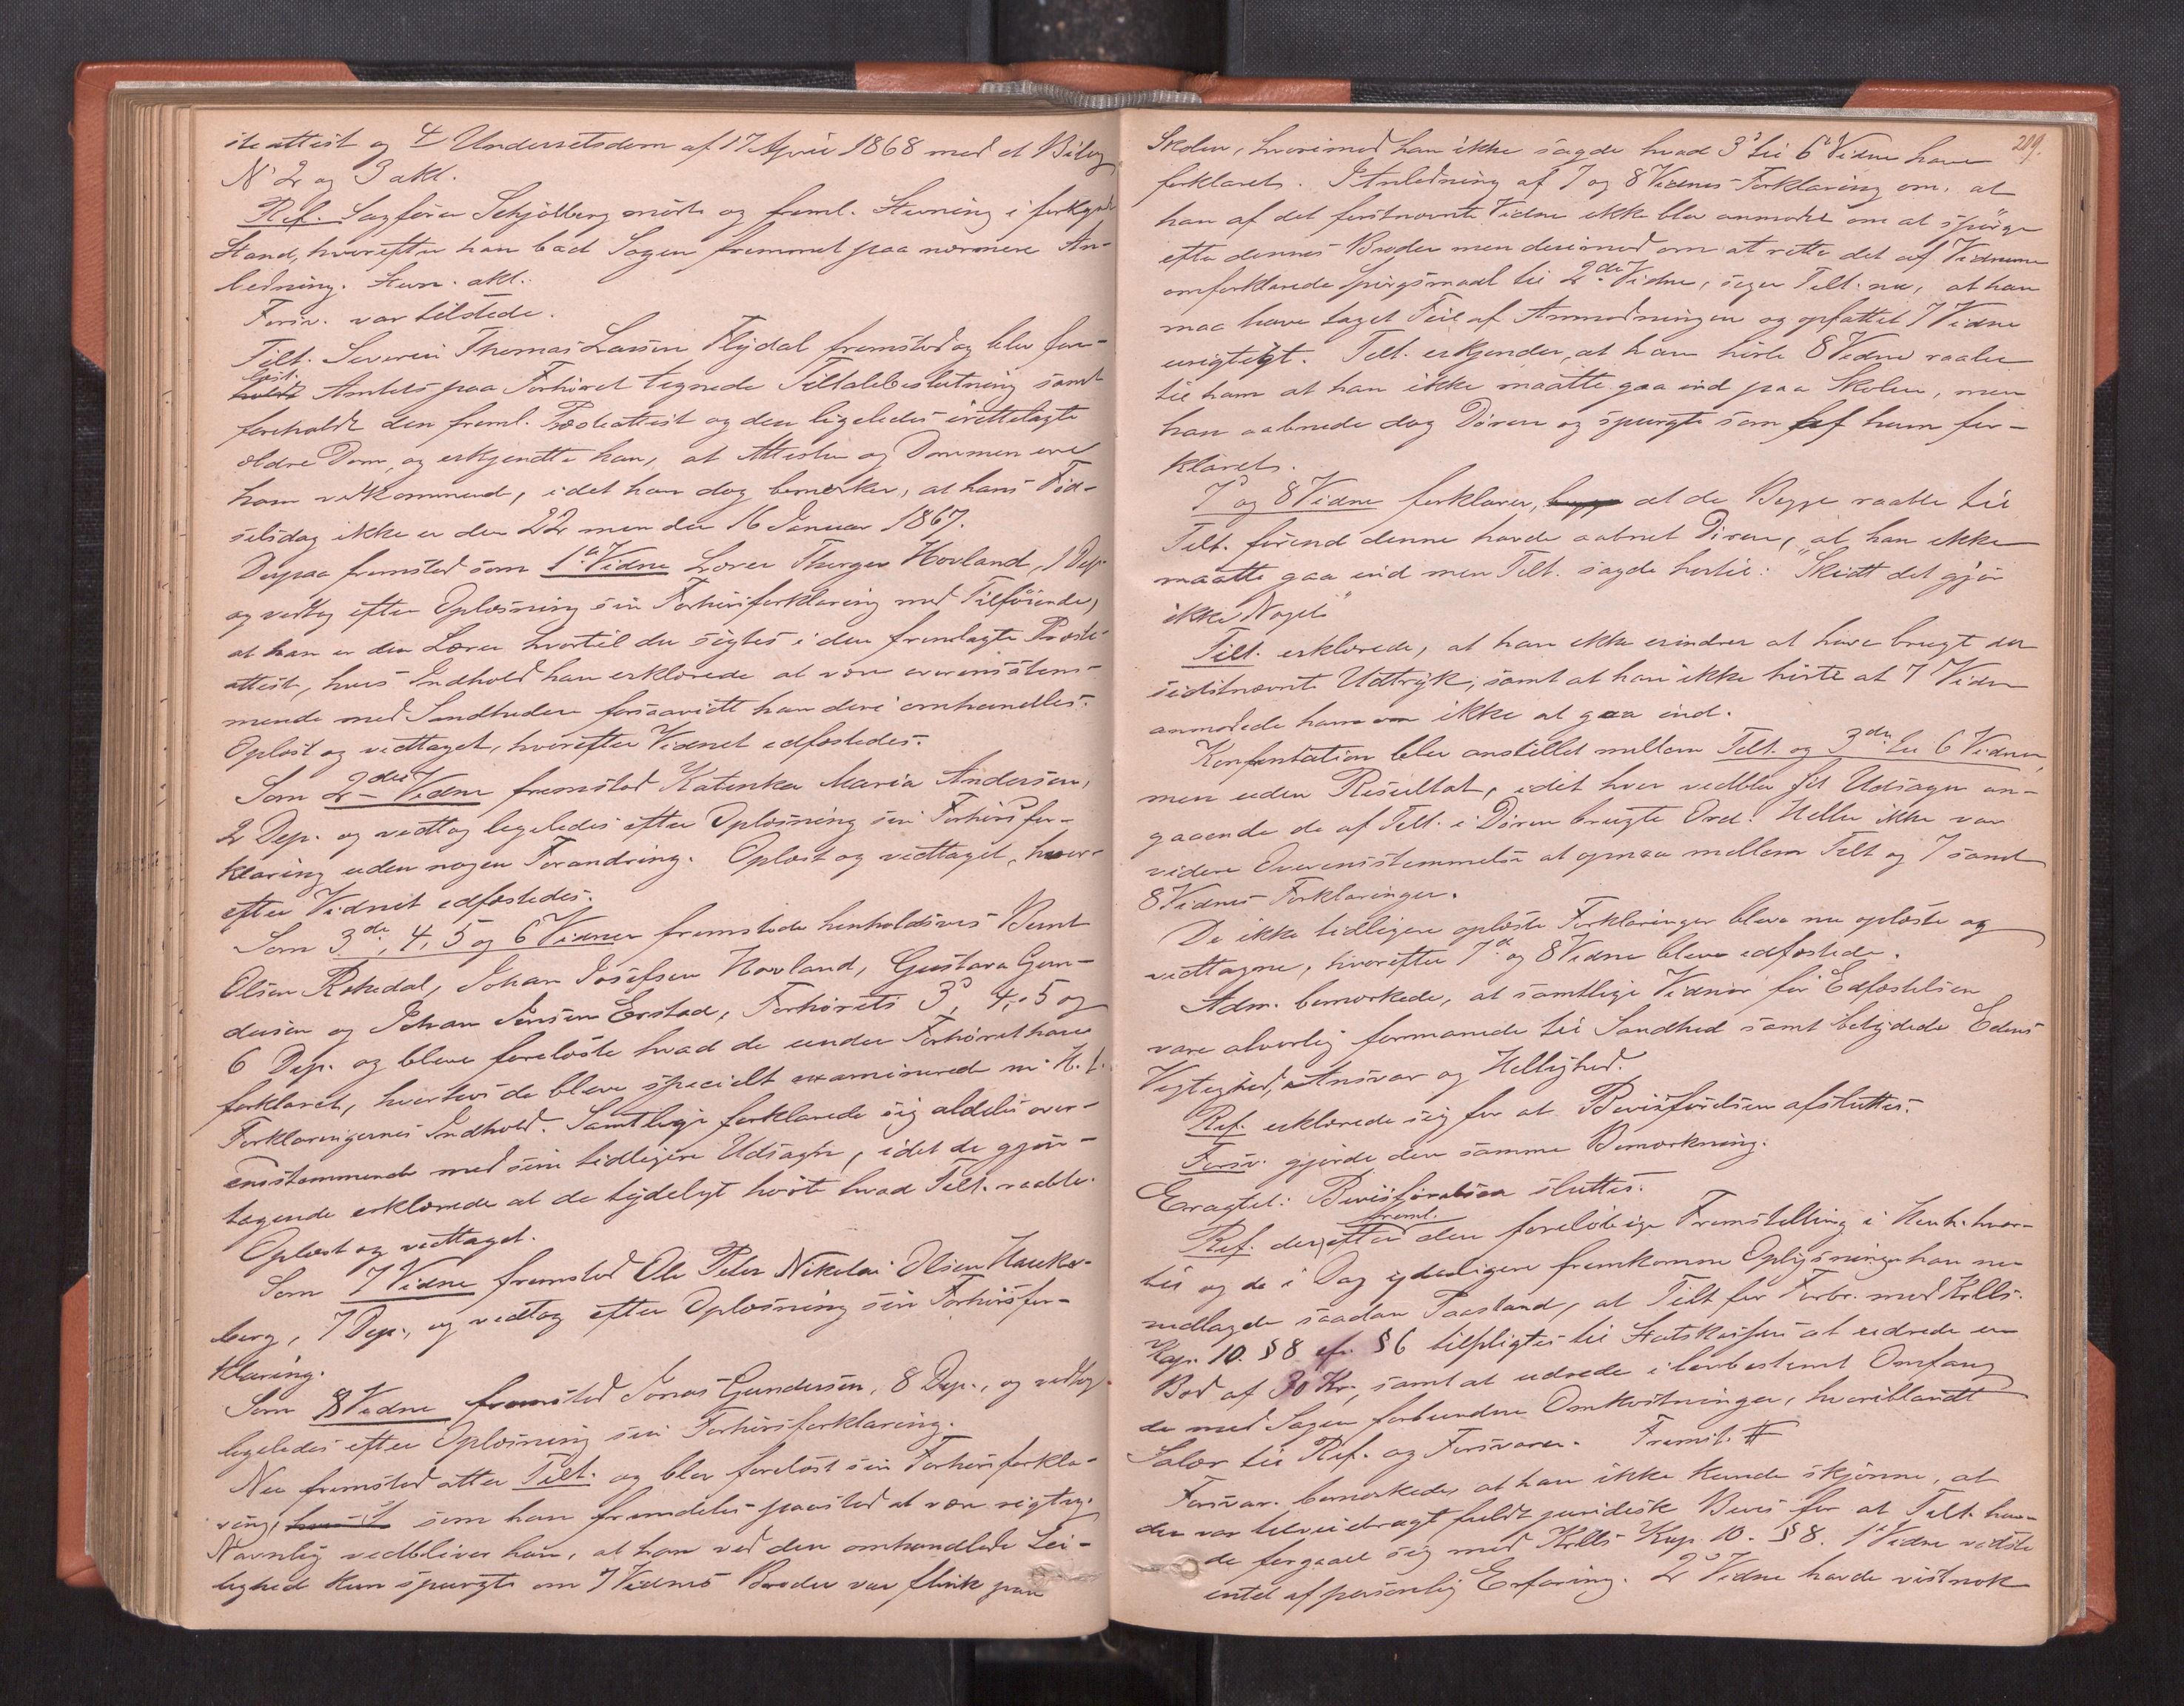 steattest og 4 Underretsdom af 17 April 1868 med et Bilag
No 2 og 3 akt.
Ref. Sagfører Schjølberg mødte og freml. Stevning i forkyndt
Stand, hvorefter han bad Sagen fremmet paa nærmere An-
ledning. Stevn. akt.
Forsv. var tilstede.
Tilt. Severin Thomas Larsen Flydal fremstod og blev fore-
læst Amtets paa Forhøret tegnede Tiltalebeslutning samt
foreholdt den freml. Prædeattest og den ligeledes irettelagte
ældre Dom, og erkjendte han, at Attesten og Dommen ere
ham vedkommend, idet han dog bemerker, at hans Fød-
selsdag ikke er den 22 men den 16 Januar 1867.
Derpaa fremstod som 1a Vidne Lærer Thorger Hovland, 1 Dep.
og vedtog efter Oplæsning sin Forhørsforklaring med Tilføiende,
at han er den Lærer hvortil der sigtes i den fremlagte Præste-
attest, hvis Indhold han erklærede at være overensstem-
mende med Sandheden forsaavidt han deri omhandles.
Oplæst og vedtaget, hvorefter Vidnet edfæstedes.
Som 2det Vidne fremstod Katinka Maria Andersen,
2 Dep. og vedtog ligeledes efter Oplæsning sin Forhørsfor-
klaring uden nogen Forandring. Oplæst og vedtaget, hvor-
efter Vidnet edfæstedes.
Som 3de, 4, 5 og 6 Vidner fremstode henholdsvis Bernt
Olsen Rekedal, Johan Josefsen Hovland, Gustava Gun-
dersen og Johan Jensen Erstad, Forhørets 3, 4, 5 og
6 Dep. og bleve forelæste hvad de under Forhøret have
forklaret, hvorhos de bleve specielt examinerede m. H. t.
Forklaringernes Indhold. Samtlige forklarede sig aldeles over-
ensstemmende med sine tidligere Udsagn, idet de gjen-
tagende erklærede at de tydeligt hørte hvad Tilt. raabte.
Oplæst og vedtaget.
Som 7 Vidne fremstod Ole Peter Nikolai Olsen Hauke-
berg, 7 Dep., og vedtog efter Oplæsning sin Forhørsfor-
klaring.
Som 8 Vidne fremstod Jonas Gundersen, 8 Dep., og vedtog
ligeledes efter Oplæsning sin Forhørsforklaring.
Nu fremstod atter Tilt. og blev forelæst sin Forhørsforkla-
ring, som han fremdeles paastod at være rigtig.
Navnlig vedbliver han, at han ved den omhandlede Lei-
lighed kun spurgte om 7 Vidnes Broder var flink paa
209.
Skolen, hvorimod han ikke sagde hvad 3 til 6 Vidne have
forklaret. I Anledning af 7 og 8 Vidnes Forklaring om, at
han af det førstnævnte Vidne ikke blev anmodet om at spørge
efter dennes Broder men derimod om at rette det af Vidnerne
omforklarede Spørgsmaal til 2det Vidne, siger Tilt. nu, at han
maa have taget Feil af Anmodningen og opfattet 7 Vidne
urigtigt. Tilt. erkjender, at han hørte 8 Vidne raabe
til ham at han ikke maatte gaa ind paa Skolen, men
han aabnede dog Døren og spurgte som af ham for-
klaret.
7 og 8 Vidne forklarer, at de Begge raabte til
Tilt. førend denne havde aabnet Døren, at han ikke
maatte gaa ind men Tilt. sagde hertil: "Skidt det gjør
ikke Noget"
Tilt. erklærede, at han ikke erindrer at have brugt det
sidstnævnte Udtryk, samt at han ikke hørte at 7 Vidne
anmodede ham om ikke at gaa ind.
Konfrontation blev anstillet mellem Tilt. og 3die til 6 Vidner,
men uden Resultat, idet hver vedblev sit Udsagn an-
gaaende de af Tilt. i Døren brugte Ord. Heller ikke var
videre Overensstemmelse at opnaa mellem Tilt og 7 samt
8 Vidnes Forklaringer.
De ikke tidligere oplæste Forklaringer bleve nu oplæste og
vedtagne, hvorefter 7 og 8 Vidne bleve edfæstede.
Adm. bemærkede, at samtlige Vidner før Edfæstelsen
vare alvorlig formanede til Sandhed samt betydede Edens
Vigtighed, Ansvar og Hellighed.
Ref. erklærede sig for at Bevisførelsen afsluttes.
Forsv. gjorde den samme Bemærkning.
Eragtet: Bevisførelsen sluttes.
Ref. derefter freml. den foreløbige Fremstilling i Henh. hver-
til og de i Dag yderligere fremkomne Oplysninger han nu
nedlagde saadan Paastand, at Tilt. for Forbr. mod Krlls.
Kap. 10. § 8 cfr. § 6 tilpligtes til Statskassen at udrede en
Bod af 30 Kr., samt at udrede i lovbestemt Omfang
de med Sagen forbundne Omkostninger, hvoriblandt
Salær til Ref. og Forsvarer. Fremst. #
Forsvar. bemærkede, at han ikke kunde skjønne, at
der var tilveiebragt fuldt juridisk Bevis for at Tilt. hav-
de forgaaet sig mod Krlls Kap. 10. § 8. 1 Vidne vidste
intet af personlig Erfaring. 2 Vidne havde vistnok